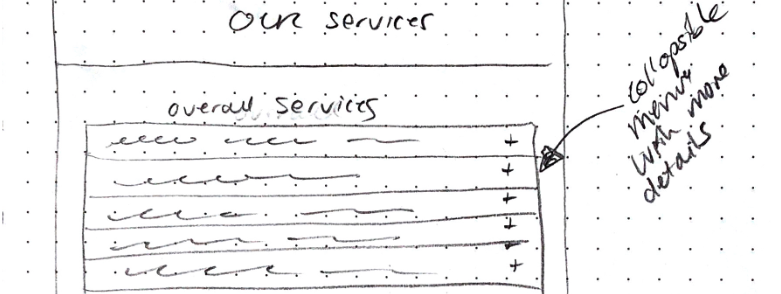 Our services
overall services
+
+
+
+
+
collapsible
menus
with more
details